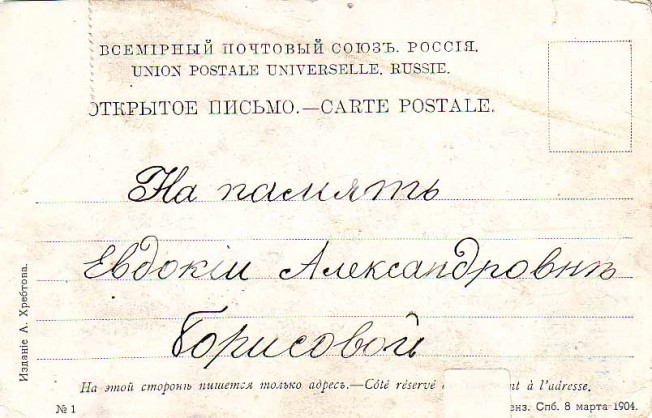 ВСЕМІРНЫЙ ПОЧТОВЫЙ СОЮЗЪ. РОССІЯ.
UNION POSTALE UNIVERSELLE. RUSSIE.
ОТКРЫТОЕ ПИСЬМО.—CARTE POSTALE.
На память
Евдокіи Александровнѣ
Борисовой
Изданіе А. Хребтова.
На этой сторонѣ пишется только адресъ.—Côté réservé à l'adresse.
№ 1
Спб. 8 марта 1904.